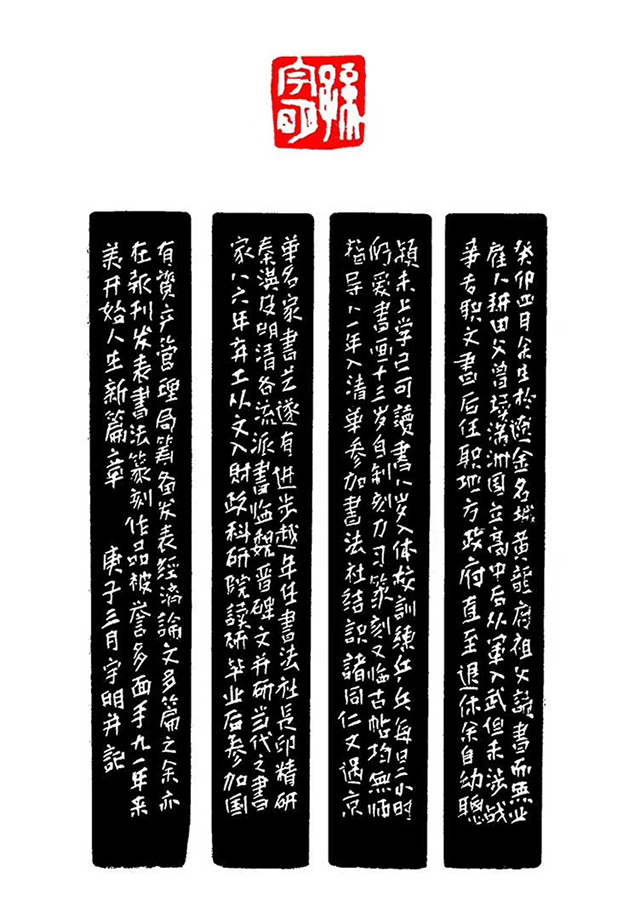 孫宇明
癸卯四月余生於遼金名城黃龍府祖父讀書而無业
雇人耕田父曾讀滿洲国立高中后从軍入武但未涉战
爭专职文書后任职地方政府直至退休余自幼聰
穎未上学已可讀書八岁入体校訓練乒乓每日三小时
仍爱書画十三岁自制刻刀习篆刻又临古帖均無师
指导八一年入清華参加書法社結識諸同仁又遇京
華名家書艺遂有进步越年任書法社長印精研
秦漢及明清各流派書临魏晋碑文并研当代之書
家八六年弃工从文入財政科研院讀研毕业后参加国
有資产管理局筹备发表經濟論文多篇之余亦
在报刊发表書法篆刻作品被誉多面手九一年来
美开始人生新篇章 庚子三月宇明并記